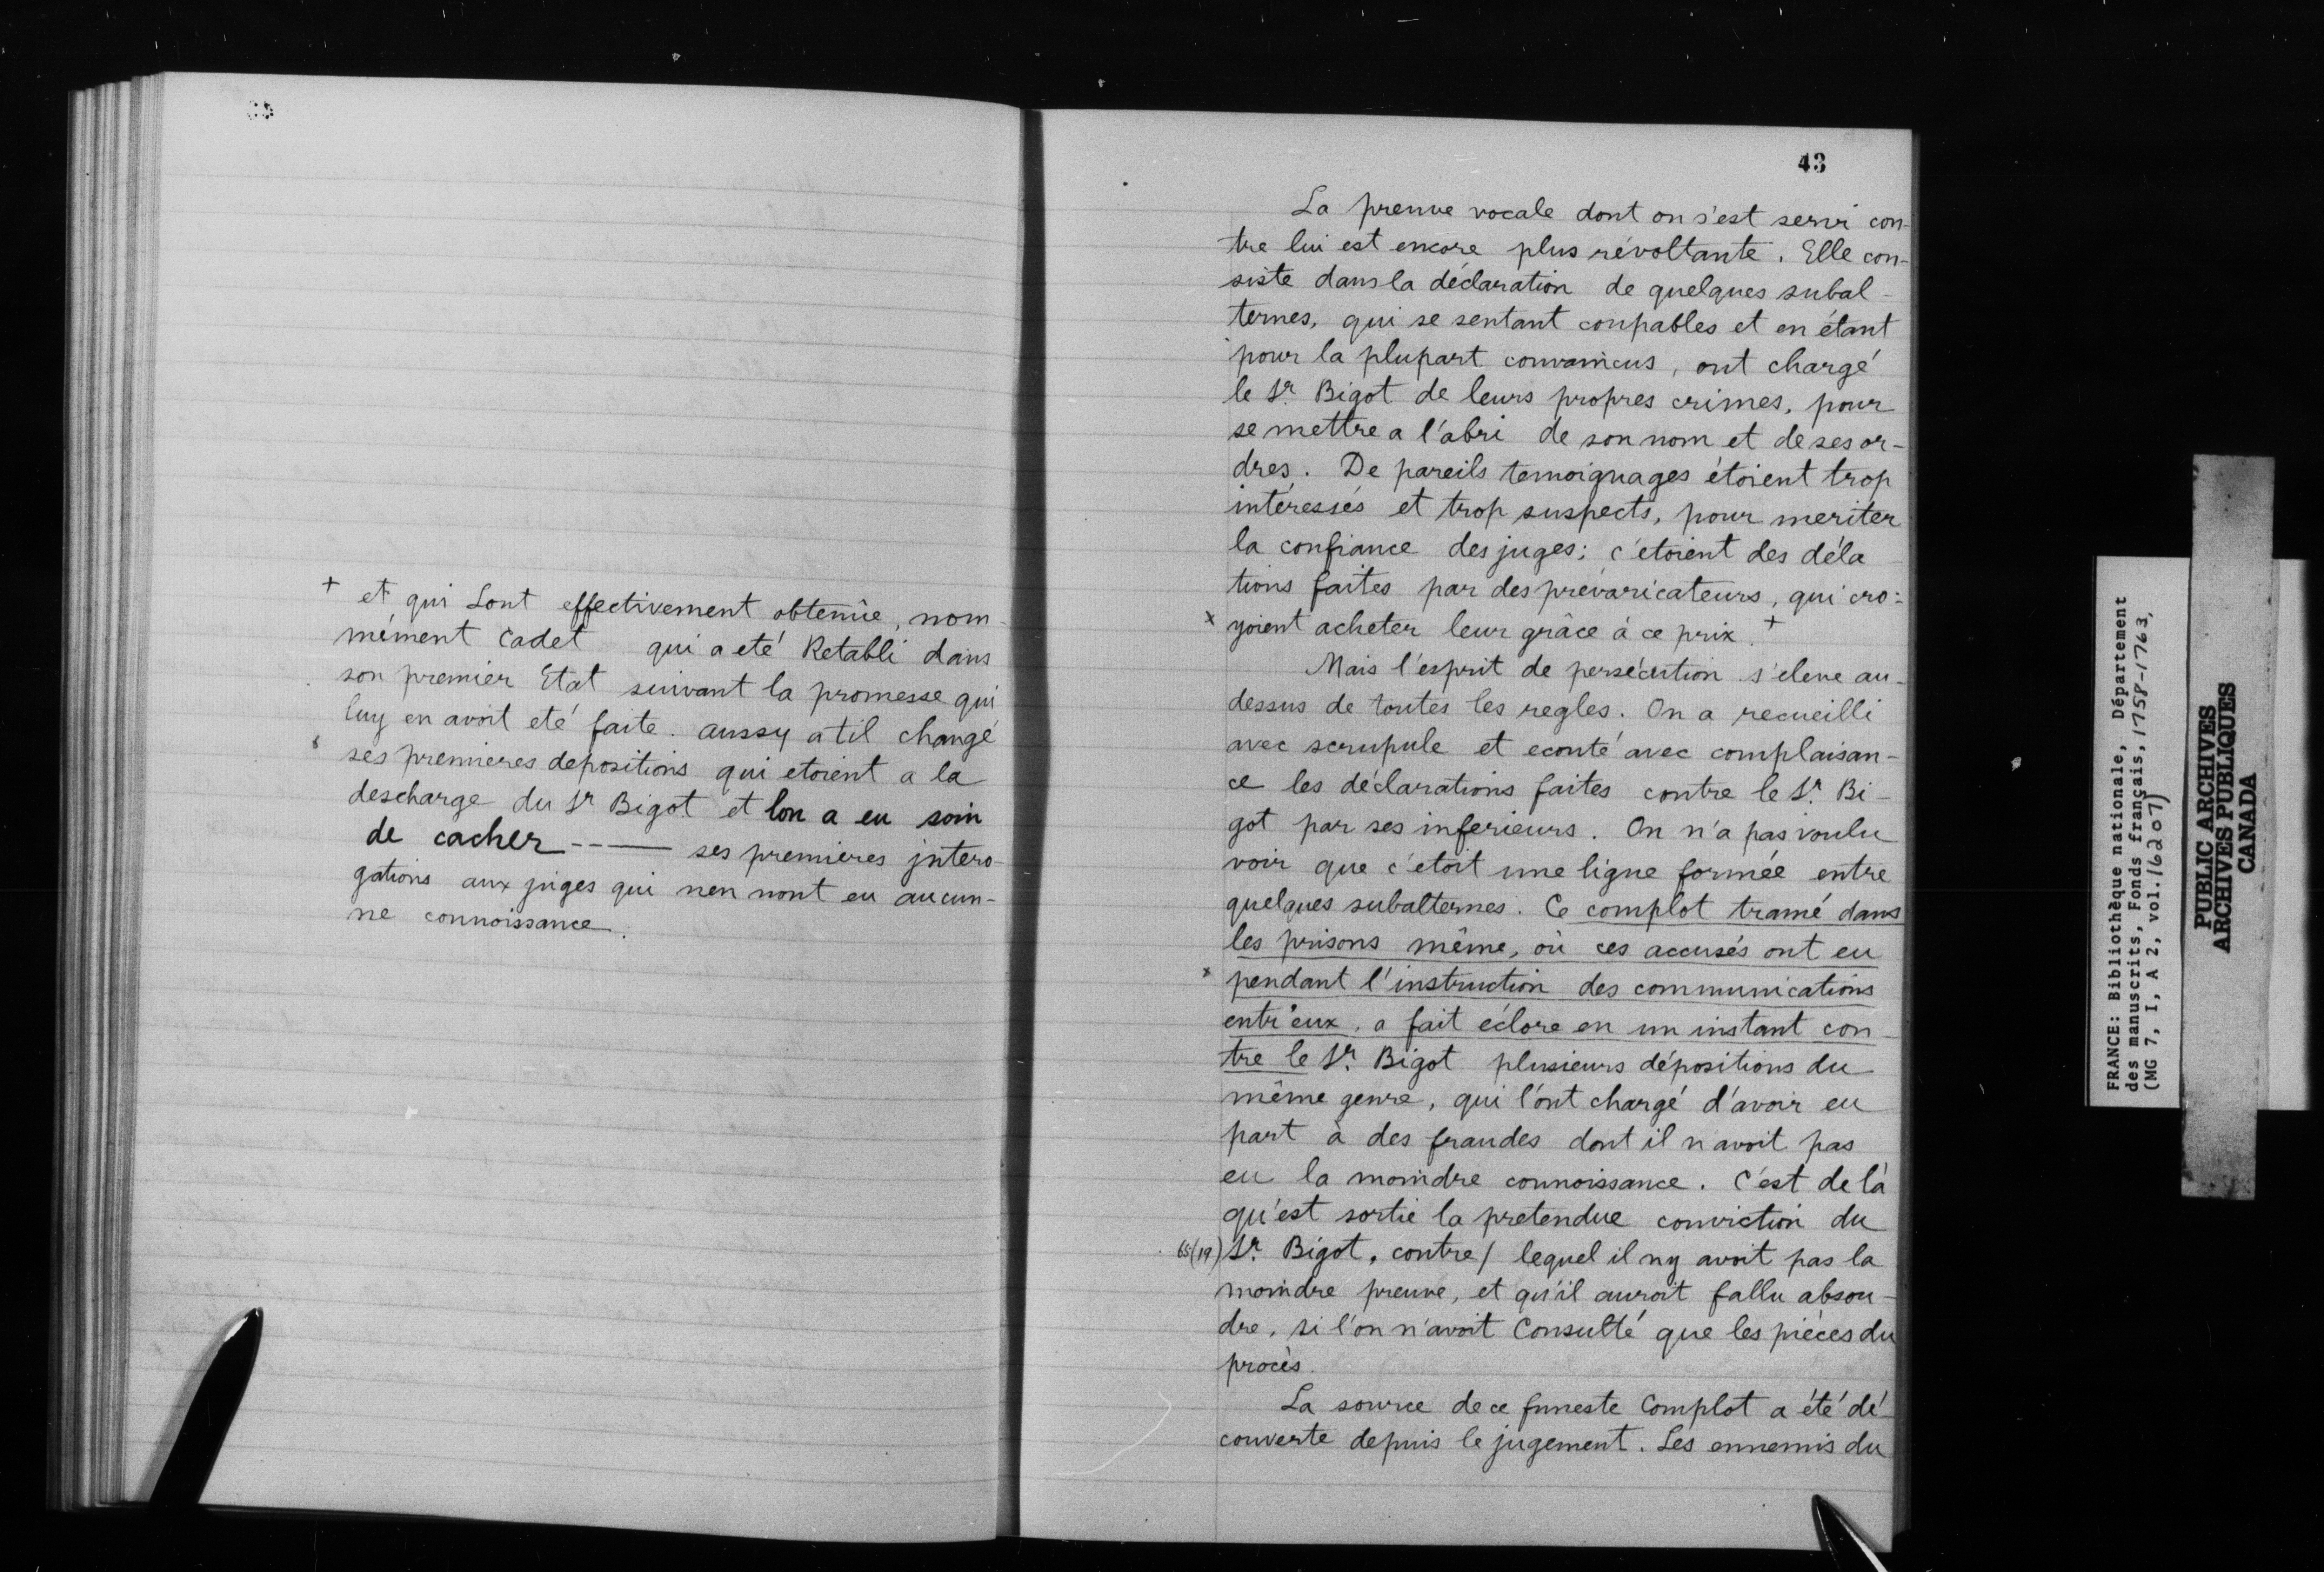 + et qui Lont effectivement obtenüe, nom-
mément Cadet qui a eté Retabli dans
son premier Etat suivant la promesse qui
luy en avoit eté faite. aussy atil changé
ses premieres depositions qui etoient a la
descharge du Sr Bigot et lon a eu soin
de cacher ----- ses premieres jntero-
gations aux juges qui nen nont eu aucun-
ne connoissance.
43
La preuve vocale dont on s'est servi con-
tre lui est encore plus révoltante. Elle con-
siste dans la déclaration de quelques subal-
ternes, qui se sentant coupables et en étant
pour la plupart convaincus, ont chargé
le Sr. Bigot de leurs propres crimes, pour
se mettre a l'abri de son nom et de ses or-
dres. De pareils temoignages étoient trop
intéressés et trop suspects, pour meriter
la confiance des juges; c'etoient des déla
tions faites par des prévaricateurs, qui cro-
x yoient acheter leur grâce à ce prix. +
Mais l'esprit de persécution s'eleve au-
dessus de toutes les regles. On a recueilli
avec scrupule et ecouté avec complaisan-
ce les déclarations faites contre le Sr. Bi-
got par ses inferieurs. On n'a pas voulu
voir que c'etoit une ligue formée entre
quelques subalternes. Ce complot tramé dans
les prisons même, où ces accusés ont eu
x pendant l'instruction des communications
entr'eux, a fait éclore en un instant con-
tre le Sr. Bigot plusieurs dépositions du
même genre, qui l'ont chargé d'avoir eu
part à des fraudes dont il n'avoit pas
eu la moindre connoissance. C'est de là
qu'est sortie la pretendue conviction du
65(19) Sr. Bigot, contre / lequel il ny avoit pas la
moindre preuve, et qu'il auroit fallu absou-
dre, si l'on n'avoit Consulté que les pièces du
procès.
La source de ce funeste Complot a été dé-
couverte depuis le jugement. Les ennemis du
FRANCE: Bibliothèque nationale, Département
des manuscrits, Fonds français, 1758-1763,
(MG 7, I, A 2, vol. 16207)
PUBLIC ARCHIVES
ARCHIVES PUBLIQUES
CANADA